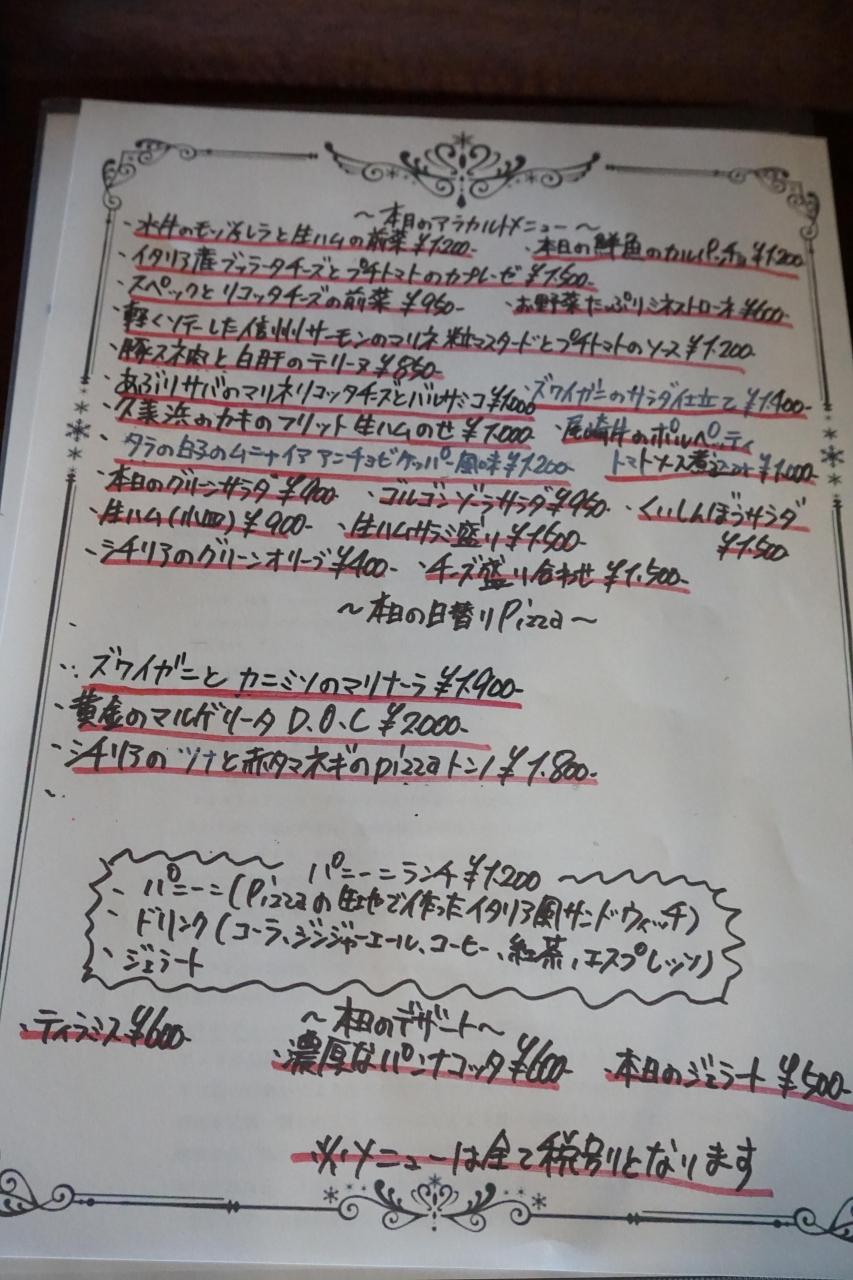 ～本日のアラカルトメニュー～
・水牛のモッツァレラと生ハムの前菜 ¥1,200- ・本日の鮮魚のカルパッチョ ¥1,200
・イタリア産ブッラータチーズとプチトマトのカプレーゼ ¥1,500-
・スペックとリコッタチーズの前菜 ¥950- ・お野菜たっぷりミネストローネ ¥600-
・軽くソテーした信州サーモンのマリネ 粒マスタードとプチトマトのソース ¥1,200-
・豚スネ肉と白肝のテリーヌ ¥850-
・あぶりサバのマリネリコッタチーズとバルサミコ ¥1,000 ・ズワイガニのサラダ仕立て ¥1,400-
・久美浜のカキのフリット 生ハムのせ ¥1,000- ・尾崎牛のポルペッティ
・タラの白子のムニャイア アンチョビケッパー風味 ¥1,200- トマトソース煮込み ¥1,000-
・本日のグリーンサラダ ¥900- ・ゴルゴンゾーラサラダ ¥950- ・くいしんぼうサラダ
・生ハム(小皿) ¥900- ・生ハムサラミ盛り ¥1,500- ¥1,500
・シチリアのグリーンオリーブ ¥400- ・チーズ盛り合わせ ¥1,500-
～本日の日替りPizza～
・ズワイガニとカニミソのマリナーラ ¥1,900-
・黄金のマルゲリータ D.O.C ¥2,000-
・シチリアのツナと赤タマネギのpizzaトンノ ¥1,800-
パニーニランチ ¥1,200
・パニーニ(Pizzaの生地で作ったイタリア風サンドウィッチ)
・ドリンク(コーラ、ジンジャーエール、コーヒー、紅茶、エスプレッソ)
・ジェラート
～本日のデザート～
・ティラミス ¥600- ・濃厚なパンナコッタ ¥600- ・本日のジェラート ¥500-
※メニューは全て税別りとなります